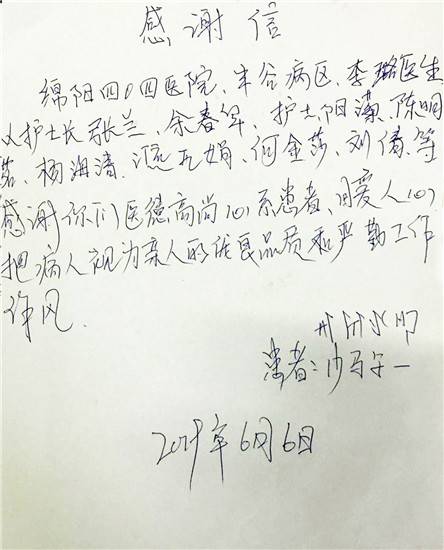 感谢信
绵阳四0四医院、丰谷病区、李璐医生
义护士长张兰、余春军、护士阳薇、陈明
茗、杨海清、沉瓦娟、何金莎、刘倩、等
感谢你们医德高尚心系患者、用爱人心
把病人视为亲人的优良品质和严勤工作
作风.
患者:沙马尔一
2019年6月6日